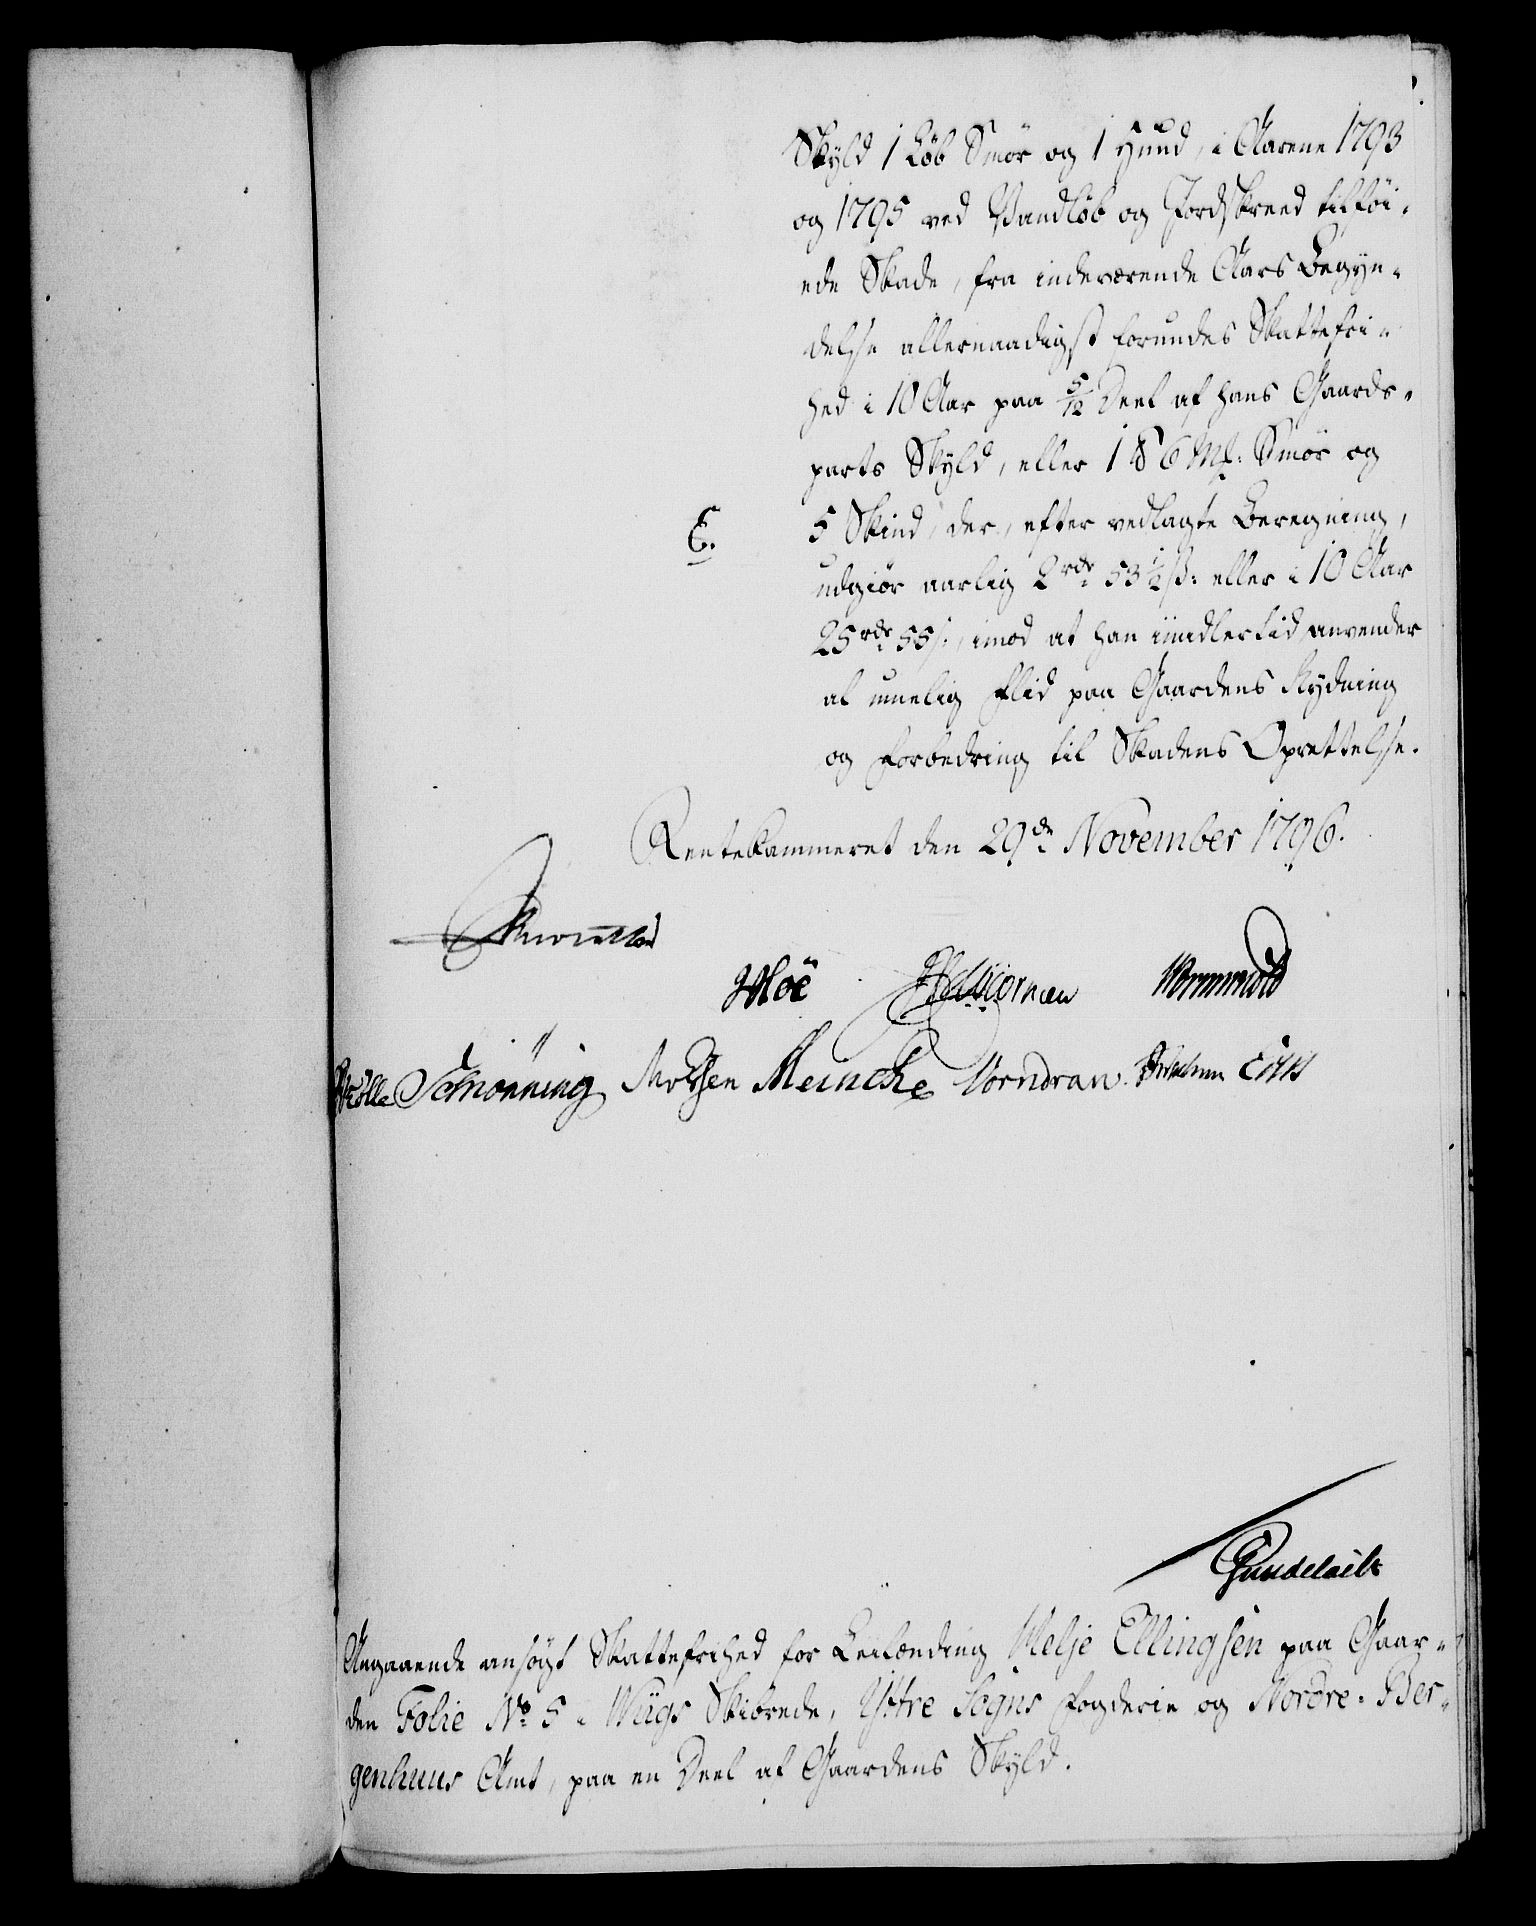 Skyld 1 Løb Smør og 1 Hund, i Aarene 1793
og 1795 ved Vandløb og Jordskreed tilføi-
ede Skade, fra indeværende Aars Begyn-
delse allernaadigst forundes Skattefri-
hed i 10 Aar paa 5/12 Deel af hans Gaards-
parts Skyld, eller 1 ℔ 6 Mk: Smør og
E. 5 Skind, der, efter vedlagte Beregning,
udgiør aarlig 2 rdr 53 1/2 ß: eller i 10 Aar
25 rdr 55 ß., imod at han imidlertid anvender
al muelig Flid paa Gaardens Rydning
og Forbedring til Skadens Oprettelse.
Rentekammeret den 29de November 1796.
Moe Wormskiold
Schønning Motzfen Meincke Vorndran.
Gundelach
Angaaende ansøgt Skattefrihed for Leilænding Melje Ellingsen paa Gaar-
den Folie No 5 i Wiigs Skibrede, Yttre Sogns Fogderie og Nordre-Ber-
genhuus Amt, paa en Deel af Gaardens Skyld.